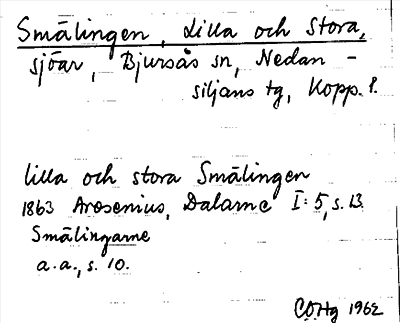 Smälingen, Lilla och Stora,
sjöar, Bjursås sn, Nedan-
siljans tg, Kopp. l.
lilla och stora Smälingen
1863 Arosenius, Dalarne I:5, s. 13.
Smälingarne
a.a., s. 10.
COHg 1962